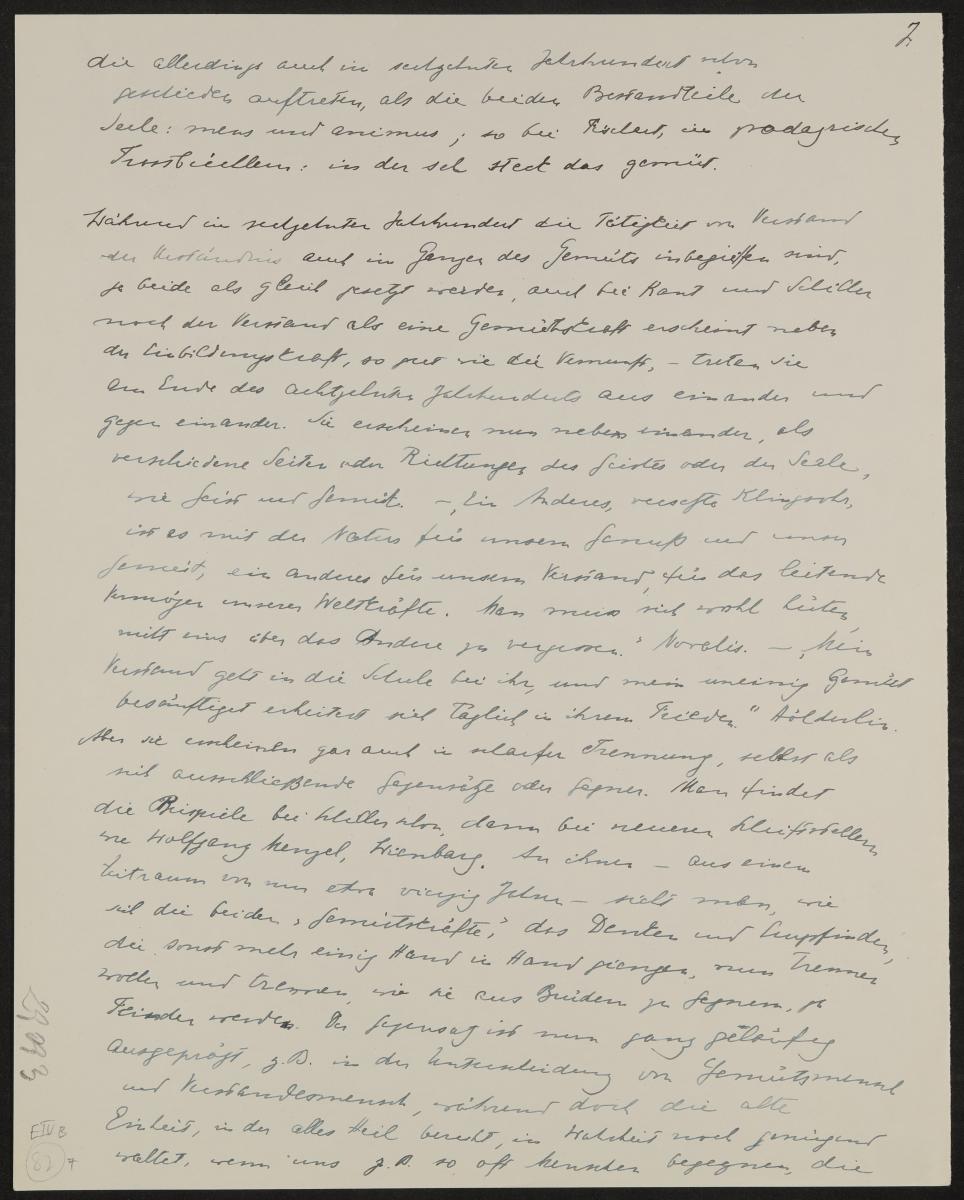 7.
die allerdings auch im sechzehnten Jahrhundert schon
geschieden auftreten, als die beiden Bestandteile der
Seele: mens und animus; so bei Fischart, im podagrischen
Trostbüchlein: in der seh steckt das gemüt.
Während im sechzehnten Jahrhundert die Tätigkeit von Verstand
der Verständnis auch im Ganzen des Gemüts inbegriffen sind,
ja beide als gleich gesetzt werden, auch bei Kant und Schiller
noch der Verstand als eine Gemütskraft erscheint neben
der Einbildungskraft, so gut wie die Vernunft, – treten sie
am Ende des achtzehnten Jahrhunderts aus einander und
gegen einander. Sie erscheinen nun neben einander, als
verschiedene Seiten oder Richtungen des Geistes oder der Seele,
wie Geist und Gemüt. – „Ein Anderes, versetzte Klingsohr,
ist es mit der Natur für unsern Genuß und unser
Gemüt, ein anderes für unsern Verstand, für das leitende
Vermögen unserer Weltkräfte. Man muss sich wohl hüten,
nicht eins über das Andere zu vergessen." Novalis. – „Mein
Verstand geht in die Schule bei ihr, und mein uneinig Gemüt
besänftiget erheitert sich täglich in ihrem Frieden." Hölderlin.
Aber sie erscheinen gar auch in scharfer Trennung, selbst als
sich ausschließende Gegensätze oder Gegner. Man findet
die Beispiele bei Schiller schon, dann bei neueren Schriftstellern
wie Wolfgang Menzel, Wienbarg. An ihnen – aus einem
Zeitraum von nun etwa vierzig Jahren – sieht man, wie
sich die beiden „Gemütskräfte", das Denken und Empfinden,
die sonst mehr einig Hand in Hand giengen, nun trennen
wollen und trennen, wie sie aus Brüdern zu Gegnern, ja
Feinden werden. Der Gegensatz ist nun ganz geläufig
ausgeprägt, z.B. in der Unterscheidung von Gemütsmensch
und Verstandesmensch, während doch die alte
Einheit, in der alles Heil beruht, in Wahrheit noch genügend
waltet, wenn uns z.B. so oft Menschen begegnen, die
EIVB
82 7